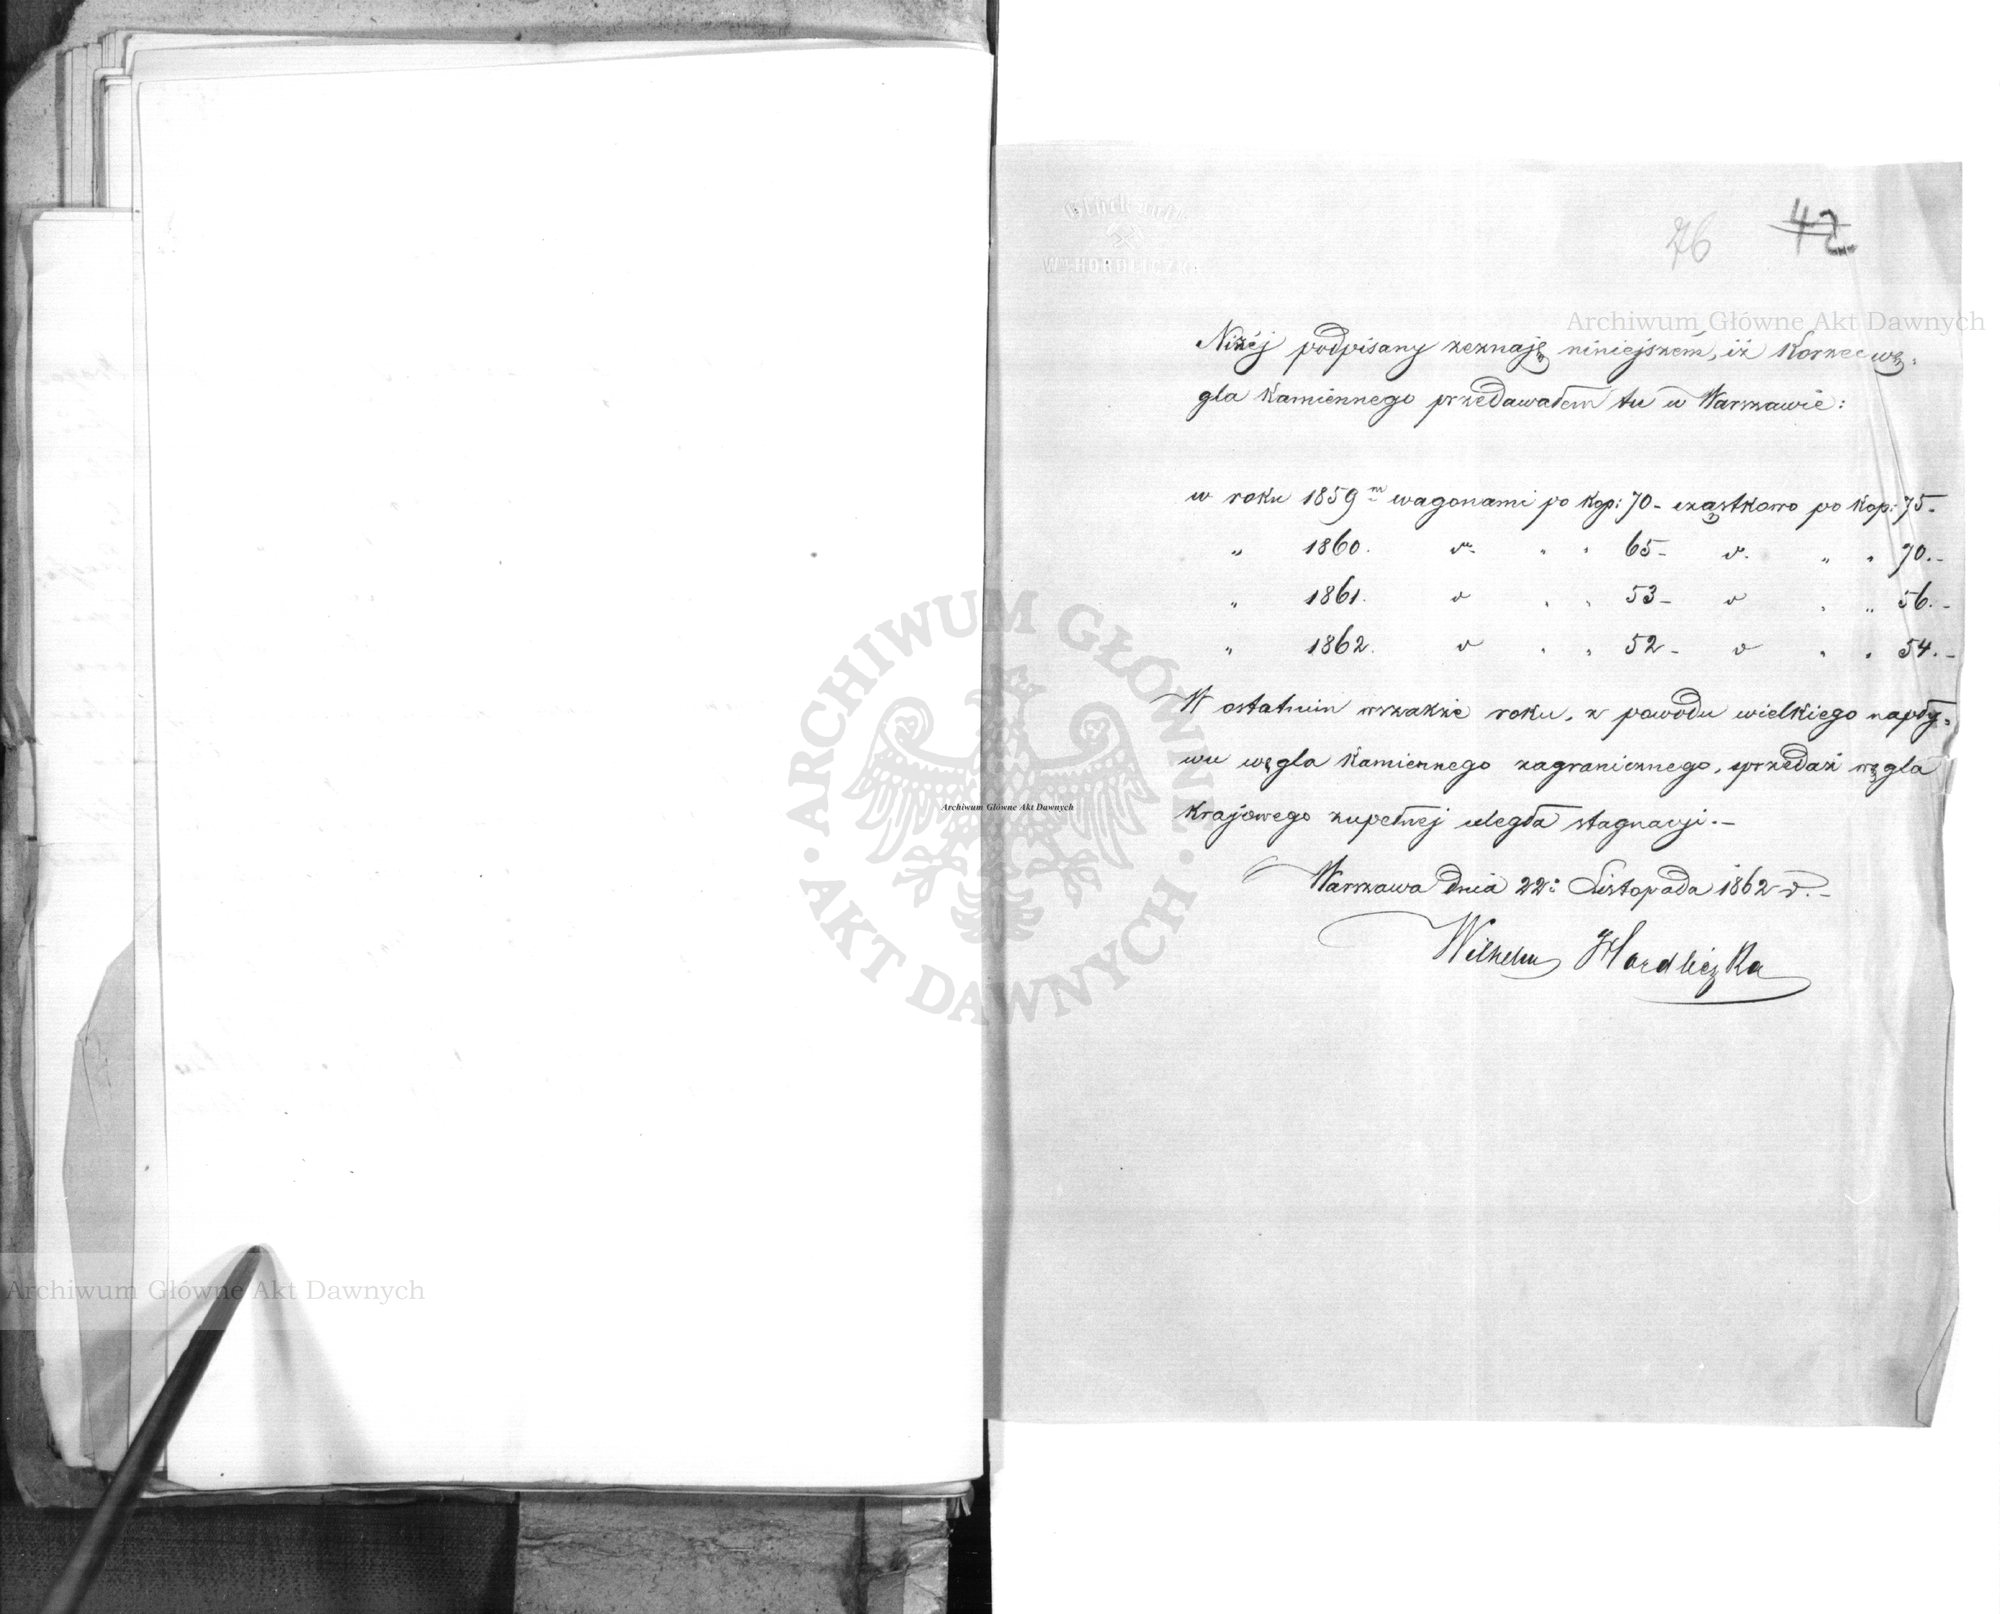 Glück auf!
W. HORDLICZKA
76 42
Archiwum Główne Akt Dawnych
Niżéj podpisany zeznaję niniejszém, iż Korzec wę-
gla Kamiennego przedawałem tu w Warszawie:
w roku 1859 m wagonami po Kop: 70 – cząstkowo po Kop: 75 –
„ 1860. d⁰ „ „ 65 – d⁰. „ „ 70. –
„ 1861. d⁰ „ „ 53 – d⁰ „ „ 56. –
„ 1862. d⁰ „ „ 52 – d⁰ „ „ 54. –
W ostatnim wszakże roku, z powodu wielkiego napły-
wu węgla Kamiennego zagranicznego, sprzedaż węgla
Krajowego zupełnej uległa stagnacyi. –
Warszawa dnia 22: Listopada 1862 r. –
Wilhelm Hordliczka
ARCHIWUM GŁÓWNE
AKT DAWNYCH
Archiwum Główne Akt Dawnych
Archiwum Główne Akt Dawnych